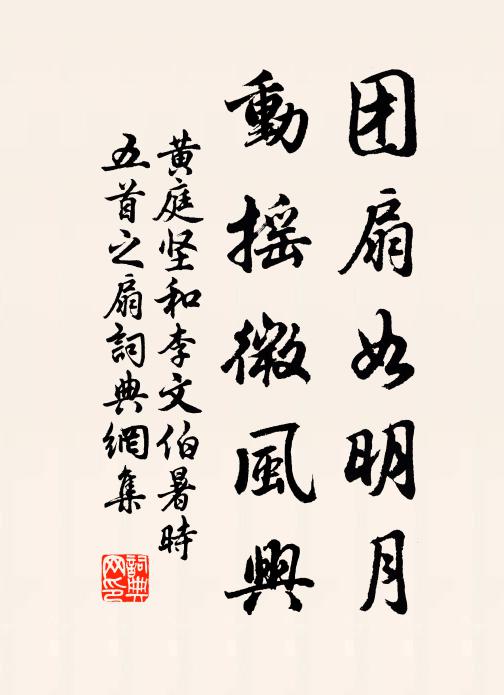 团扇如明月
動摇微風興
黄庭坚和李文伯暑時
五首之扇詞典網集
詞典
网印